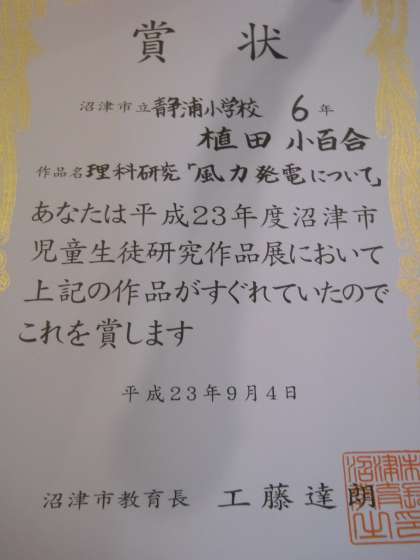 賞状
沼津市立静浦小学校 6年
植田 小百合
作品名 理科研究「風力発電について」
あなたは平成23年度沼津市
児童生徒研究作品展において
上記の作品がすぐれていたので
これを賞します
平成23年9月4日
沼津市教育長 工藤達朗